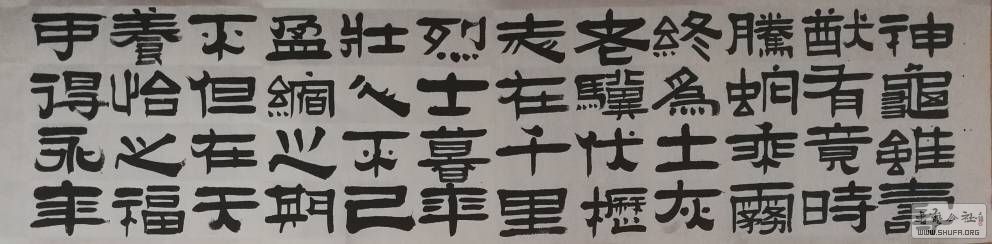 神龜雖壽
猷有竟時
騰虵乘霧
終爲土灰
老驥伏櫪
志在千里
烈士暮年
壯心不已
盈縮之期
不但在天
養怡之福
可得永年
书法公社
WWW.SHUFA.ORG